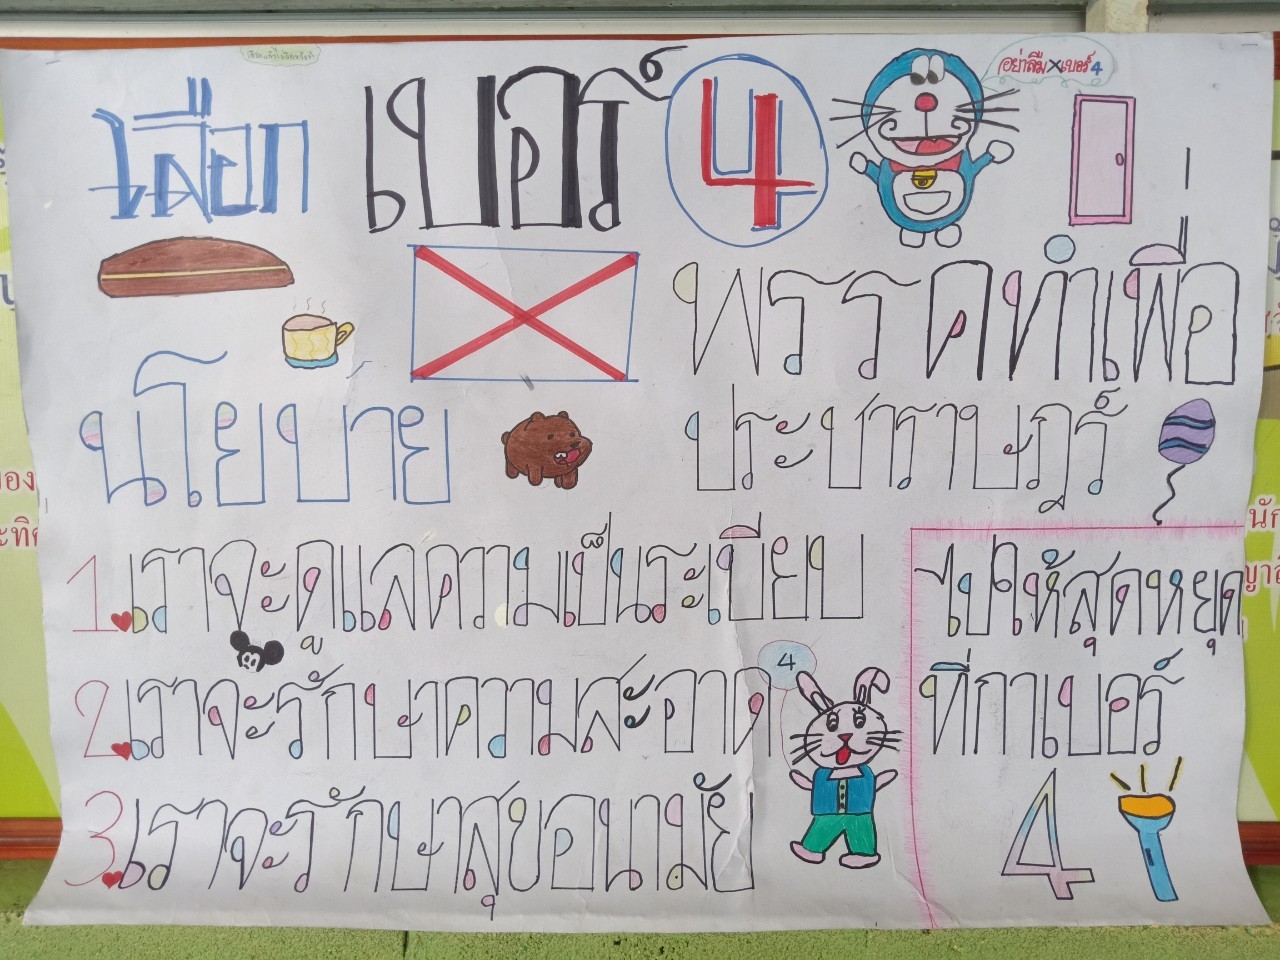 เลือก เบอร์ 4
อย่าลืม X เบอร์ 4
พรรคทำเพื่อ
ประชาราษฎร์
นโยบาย
1. เราจะดูแลความเป็นระเบียบ
2. เราจะรักษาความสะอาด
3. เราจะรักษาสุขอนามัย
4
ไปให้สุดหยุด
ที่กาเบอร์
4